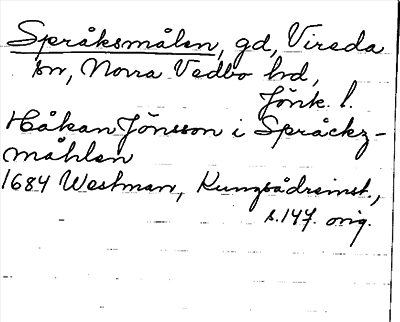 Språksmålen, gd, Vireda
sn, Norra Vedbo hd,
Jönk. l.
Håkan Jönsson i Språckz-
måhlen
1684 Westman, Kungsådreinst.,
s. 147. orig.